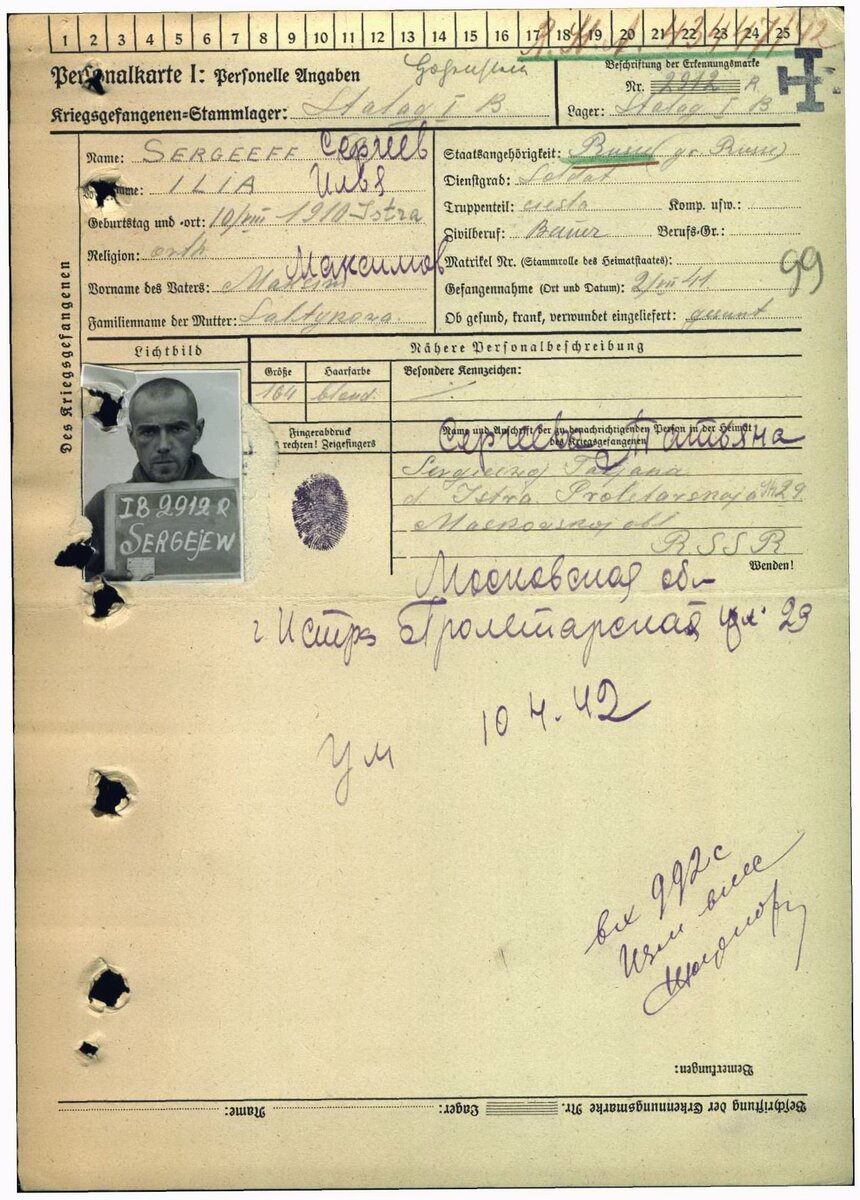 1 2 3 4 5 6 7 8 9 10 11 12 13 14 15 16 17 18 19 20 21 22 23 24 25
Personalkarte I: Personelle Angaben
Kriegsgefangenen=Stammlager: Stalag I B
Beschriftung der Erkennungsmarke
Nr. 2912 R
Lager: Stalag I B
Des Kriegsgefangenen
Name: SERGEEFF Сергеев
Vorname: ILIA Илья
Geburtstag und =ort: 10/VIII 1910 Istra
Religion: orth
Максимов
Vorname des Vaters: Maxim
Familienname der Mutter: Saltykova
Staatsangehörigkeit: Russe (gr Russe)
Dienstgrad: Soldat
Truppenteil: Komp. usw.:
Zivilberuf: Bauer Berufs=Gr.:
Matrikel Nr. (Stammrolle des Heimatstaates):
99
Gefangennahme (Ort und Datum): 2/VII 41
Ob gesund, krank, verwundet eingeliefert: gesunt
Lichtbild
Nähere Personalbeschreibung
Größe Haarfarbe Besondere Kennzeichen:
164 blond
IB 2912 R
SERGEJEW
Fingerabdruck
rechten! Zeigefingers
Name und Anschrift der zu benachrichtigenden Person in der Heimat
des Kriegsgefangenen
Сергеева Татьяна
Tatjana
Istra Proletarskaja 29
Moskovskoj obl
RSSR
Wenden!
Московская обл
г Истра Пролетарская ул. 29
10 4. 42
Ум
вх 992с
Bemerkungen:
Beschriftung der Erkennungsmarke Nr. Lager: Name: